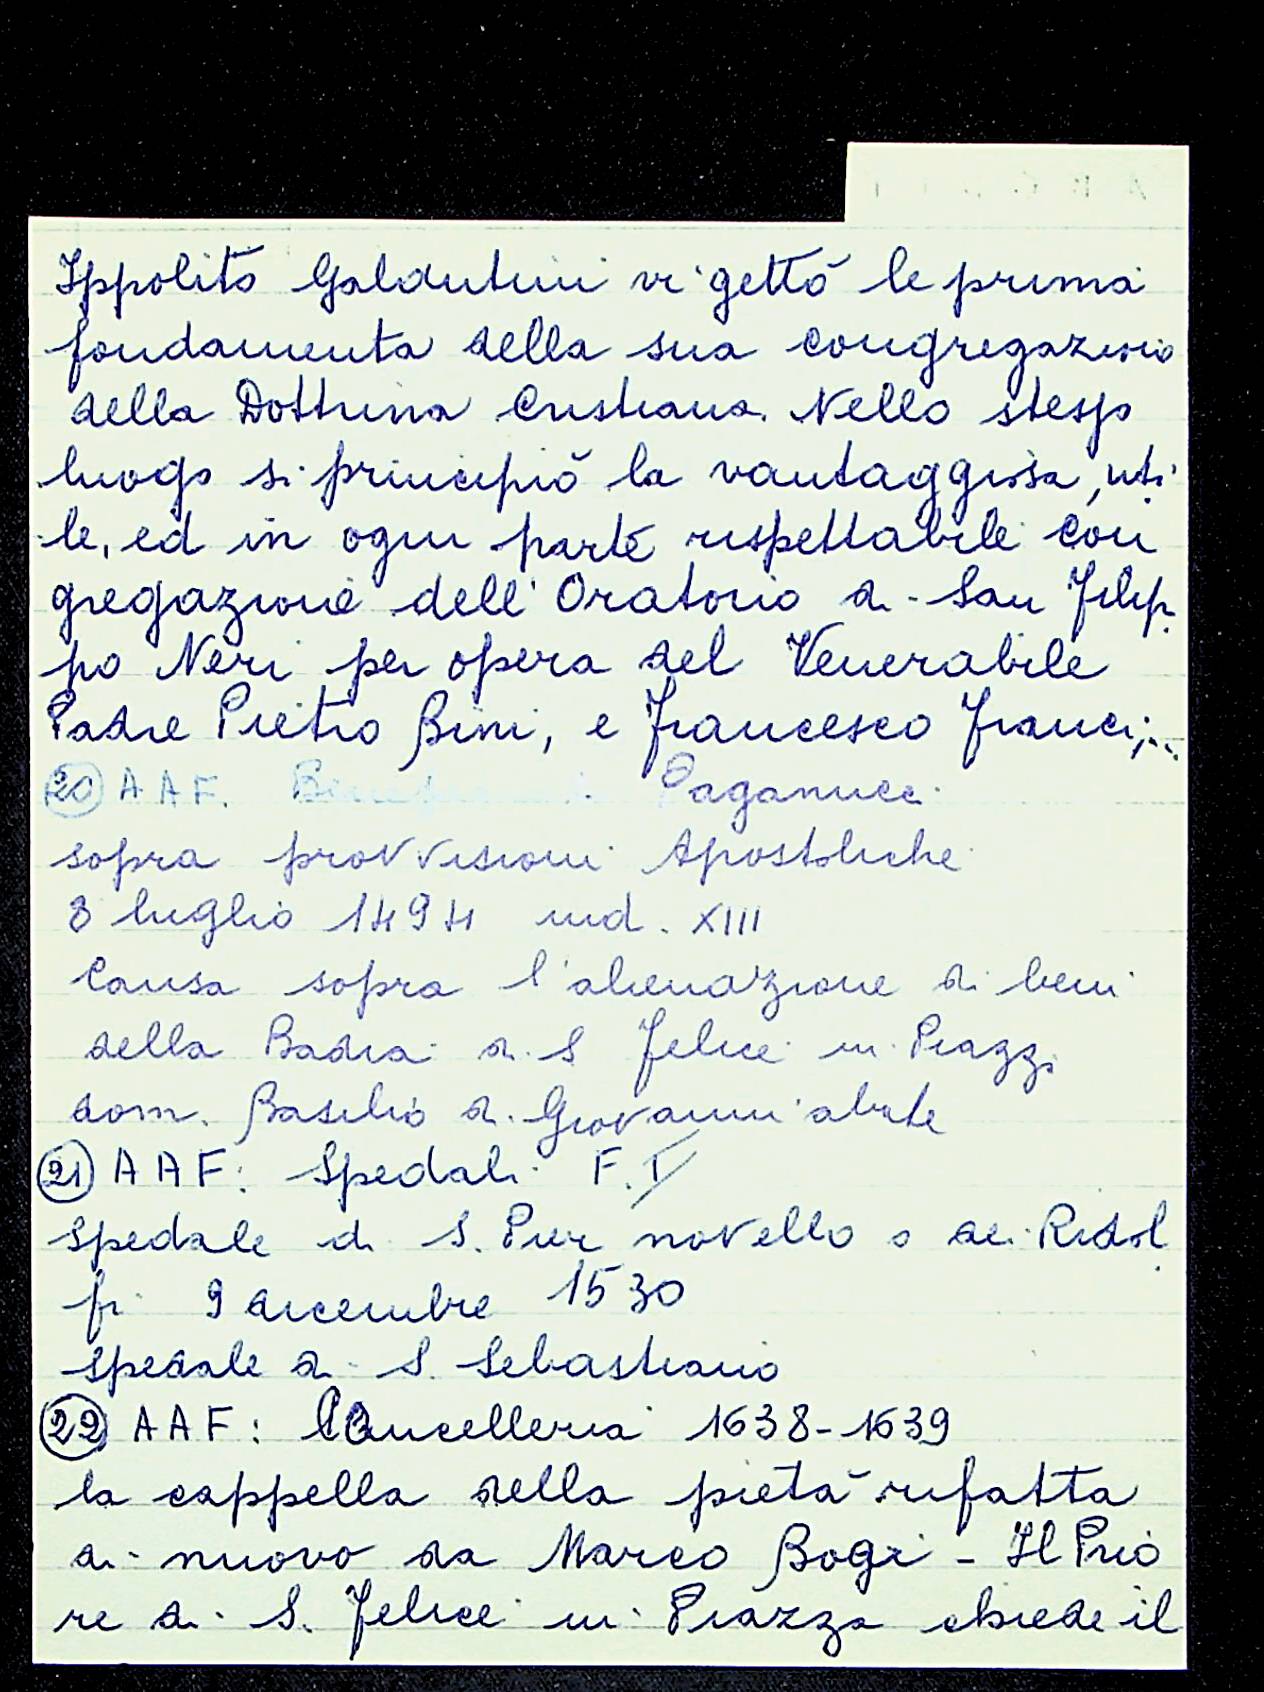 Ippolito Galantini vi gettò le prima
fondamenta della sua congregazione
della Dottrina Cristiana. Nello stesso
luogo si principiò la vantaggiosa, uti
le, ed in ogni parte rispettabile con
gregazione dell'Oratorio di San Filip
po Neri per opera del Venerabile
Padre Pietro Bini, e Francesco Franci;...
20 AAF. Paganucci
sopra provvisioni Apostoliche
8 luglio 1494 ind. XIII
Causa sopra l'alienazione di beni
della Badia di S Felice in Piazza
dom. Basilio di Giovanni abate
21 AAF: Spedali F. I
Spedale di S. Pier novello o dei Ridol
fi 9 dicembre 1530
spedale di S. Sebastiano
22 AAF: Cancelleria 1638-1639
la cappella della pietà rifatta
di nuovo da Marco Bogi - Il Prio
re di S. Felice in Piazza chiede il